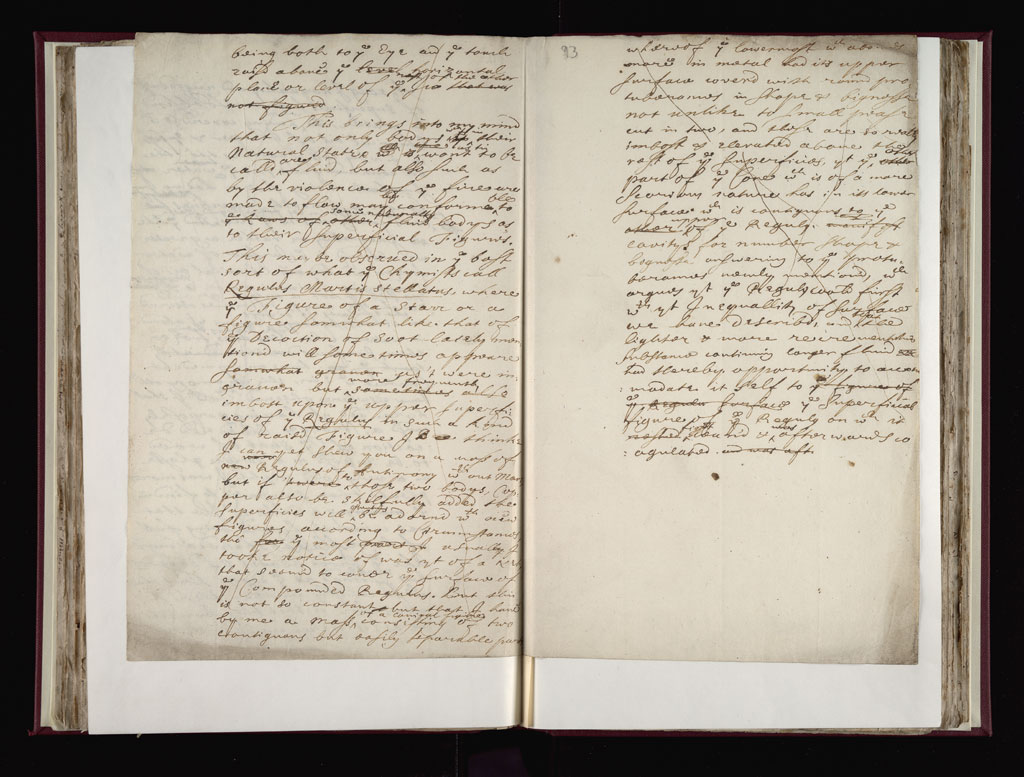 being both to ye Eye and ye touch
raisd above ye level horizontal
plane or level of ye rest of the other that was
not figur'd
This brings into my mind
that not only bodys in their
Natural State wch are wont to be
call'd fluid, but also such as
by the violence of ye fire are
made to flow may conforme to
some neighbouring fluid bodys as
to their Superficial Figures.
This may be observed in ye best
sort of what ye Chymists call
Regulus Martis Stellatus, where
ye Figure of a Starr or a
figure somwhat like that of
ye Decoction of Soot lately men
tiond will sometimes appeare
somwhat graven as it were in-
graven but more frequently
imbost upon ye upper superfi-
cies of ye Regulus in such a kind
of raisd Figure I think
I can yet shew you on a mass of
Regulus of Antimony wthout Mars
but if to those two bodys, Cop
per also be skilfully added the
superficies will be adornd wth new
figures according to Circumstances
the most usually I
tooke notice of was yt of a Net
that seemd to cover ye surface of
ye Compounded Regulus. But this
is not so constant but that I have
by me a Mass of a conical figure consisting of two
contiguous but easily separable parts
93
whereof ye lowermost wch abounds
more in metal had its upper
surface coverd with round pro
tuberances in shape & bignesse
not unlike to small pease
cut in two, and these are so really
imbost & elevated above the
rest of ye Superficies, yt ye other
part of ye Cone wch is of a more
Scorious nature has in its lower
surface wch is contiguous to ye
upper of ye Regulus
cavitys for number shape &
bignesse answering to ye protu-
berances newly mentioned, wch
argues yt ye Regulus coold first
wth yt Inequallity of surface
we have described, and that the
lighter & more recrementitious
substance continuing longer fluid
had thereby opportunity to accom
: modate it self to ye figures of
ye Regulus surface ye Superficial
figure of ye Regulus on wch it
rested & was afterwards co
: agulated. and was aft